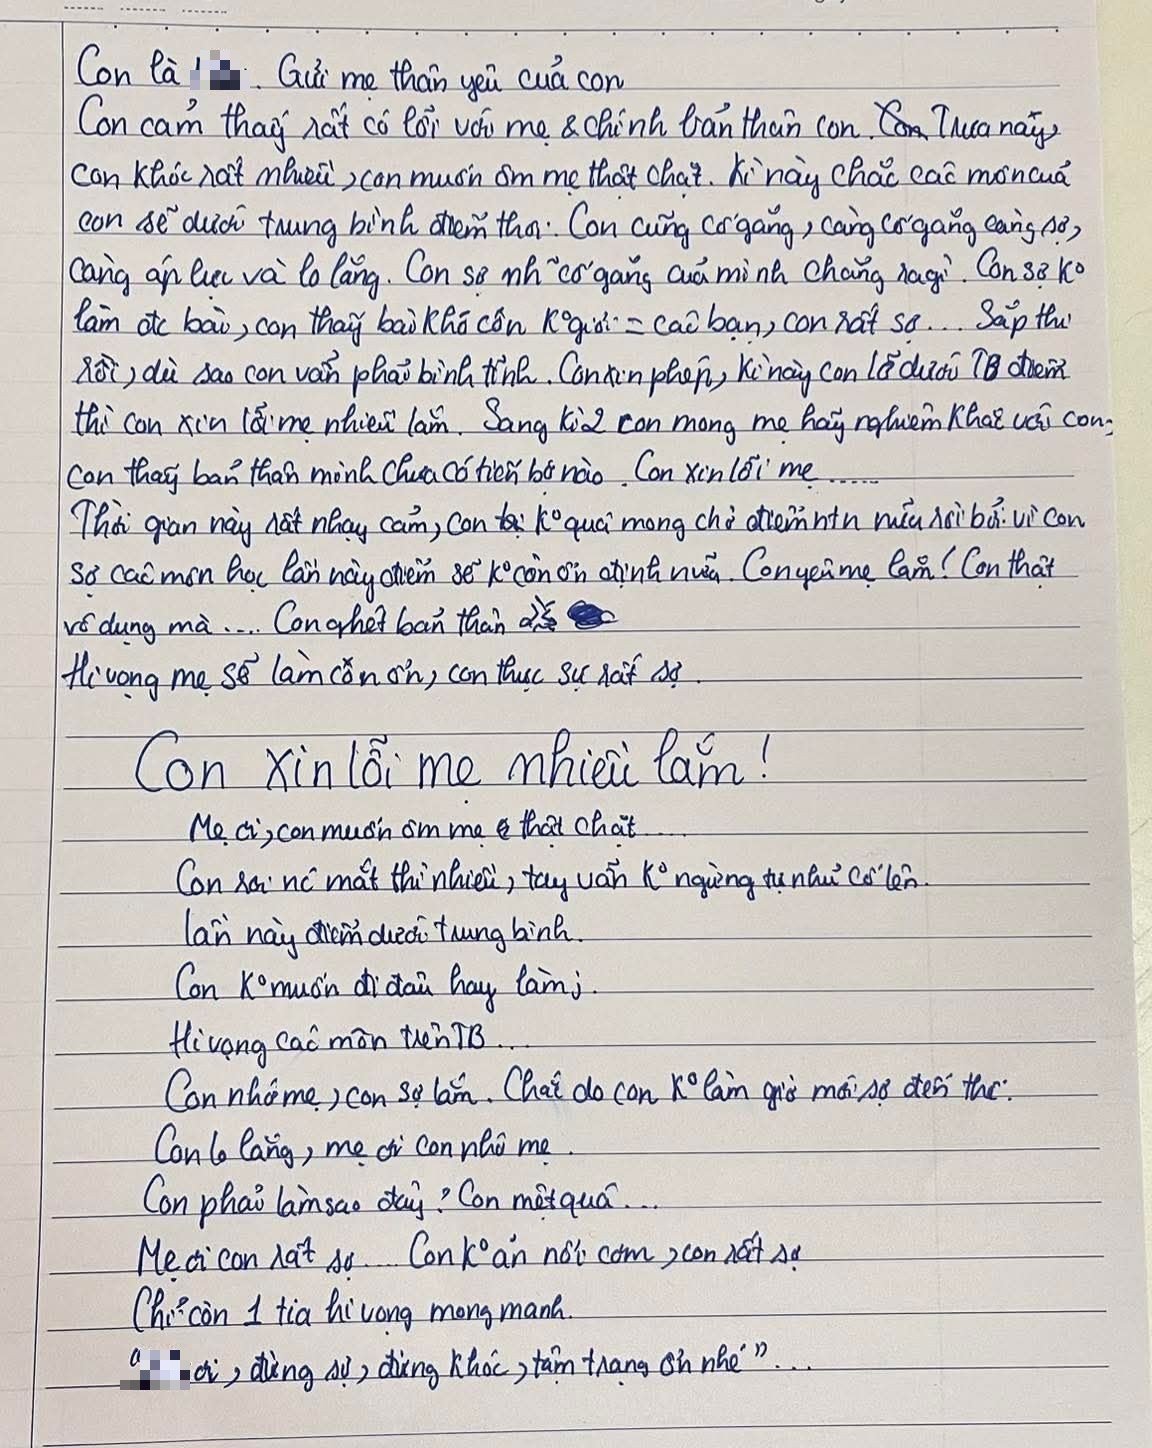 Con là . Gửi mẹ thân yêu của con
Con cảm thấy rất có lỗi với mẹ & chính bản thân con. Trưa nay,
con khóc rất nhiều, con muốn ôm mẹ thật chặt. Kì này chắc các môn của
con sẽ dưới trung bình điểm thi. Con cũng cố gắng, càng cố gắng càng sợ,
càng áp lực và lo lắng. Con sợ nh~ cố gắng của mình chẳng ra gì. Con sợ k°
làm đc bài, con thấy bài khó còn k° giỏi = các bạn, con rất sợ... Sắp thi
rồi, dù sao con vẫn phải bình tĩnh. Con xin phép, kì này con lỡ dưới TB điểm
thì con xin lỗi mẹ nhiều lắm. Sang kì 2 con mong mẹ hãy nghiêm khắc với con,
con thấy bản thân mình chưa có tiến bộ nào. Con xin lỗi mẹ......
Thời gian này rất nhạy cảm, con k° quá mong chờ điểm ntn nữa rồi bởi vì con
sợ các môn học lần này điểm sẽ k° còn ổn định nữa. Con yêu mẹ lắm! Con thật
vô dụng mà.... Con ghét bản thân
Hi vọng mẹ sẽ làm còn ổn, con thực sự rất sợ.
Con xin lỗi mẹ nhiều lắm!
Mẹ ơi, con muốn ôm mẹ thật chặt.....
Con rơi nc mắt thì nhiều, tay vẫn k° ngừng tự nhủ cố lên.
lần này điểm dưới trung bình.
Con k° muốn đi đâu hay làm j.
Hi vọng các môn trên TB...
Con nhớ mẹ, con sợ lắm. Chắc do con k° làm giờ mới sợ đến thế.
Con lo lắng, mẹ ơi con nhớ mẹ.
Con phải làm sao đây? Con mệt quá...
Mẹ ơi con rất sợ.... Con k° ăn nổi cơm, con rất sợ
Chỉ còn 1 tia hi vọng mong manh.
" ơi, đừng sợ, đừng khóc, tâm trạng ổn nhé"...